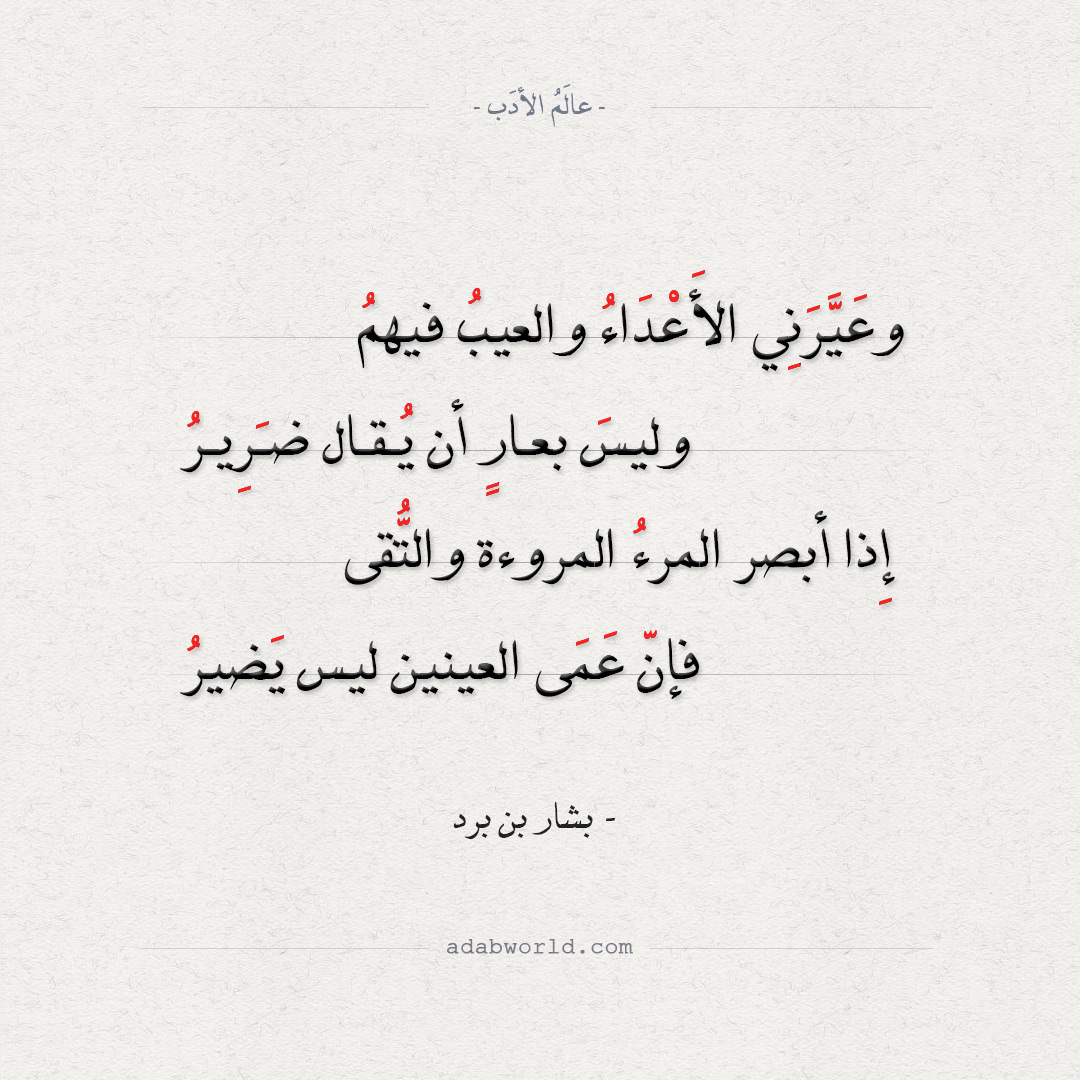 - عالَمُ الأدَب -
وعَيَّرَنِي الأَعْدَاءُ والعيبُ فيهمُ
وليسَ بعـارٍ أن يُـقـال ضـَرِيـرُ
إِذا أبصر المرءُ المروءة والتُّقى
فإنّ عَمَى العينين ليس يَضيرُ
- بشار بن برد
adabworld.com